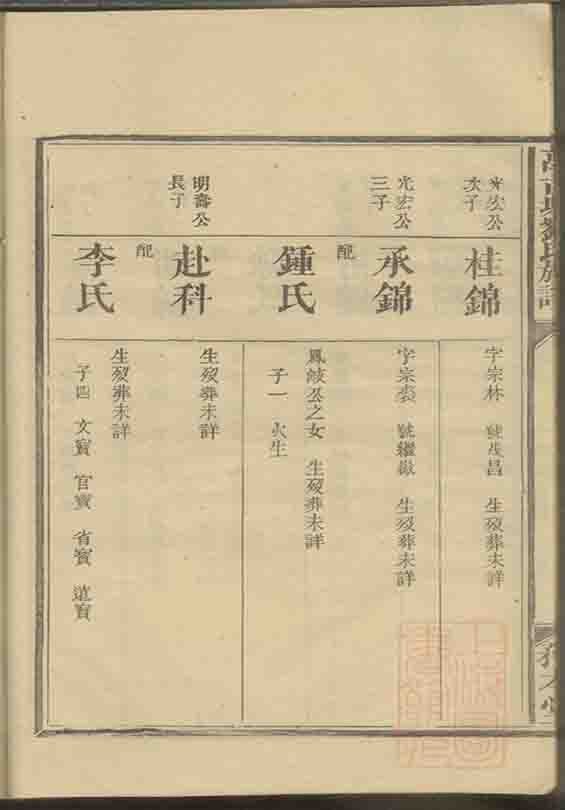 光宏公
次子
桂錦
字宗林 號茂昌 生歿葬未詳
光宏公
三子
承錦
字宗裘 號繼嶽 生歿葬未詳
配
鍾氏
鳳波公之女 生歿葬未詳
子一 火生
明壽公
長子
赴科
生歿葬未詳
配
李氏
生歿葬未詳
子四 文寶 官寶 省寶 道寶